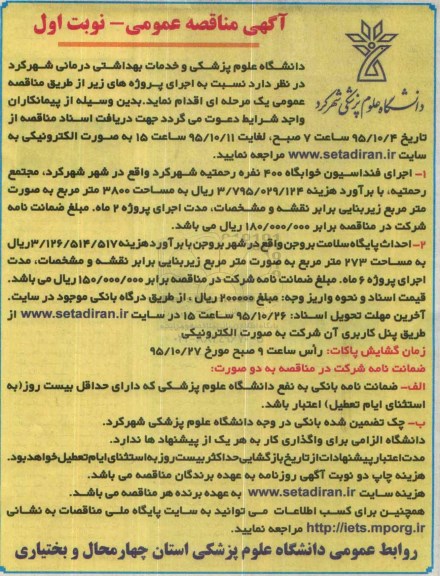 آگهی مناقصه عمومی - نوبت اول
دانشگاه علوم پزشکی شهرکرد
دانشگاه علوم پزشکی و خدمات بهداشتی درمانی شهرکرد
در نظر دارد نسبت به اجرای پروژه های زیر از طریق مناقصه
عمومی یک مرحله ای اقدام نماید. بدین وسیله از پیمانکاران
واجد شرایط دعوت می گردد جهت دریافت اسناد مناقصه از
تاریخ ۹۵/۱۰/۴ ساعت ۷ صبح، لغایت ۹۵/۱۰/۱۱ ساعت ۱۵ به صورت الکترونیکی به
سایت www.setadiran.ir مراجعه نمایید.
۱- اجرای فنداسیون خوابگاه ۴۰۰ نفره رحمتیه شهرکرد واقع در شهر شهرکرد، مجتمع
رحمتیه، با برآورد هزینه ۳/۷۹۵/۰۲۹/۱۲۴ ریال به مساحت ۳۸۰۰ متر مربع به صورت
متر مربع زیربنایی برابر نقشه و مشخصات، مدت اجرای پروژه ۲ ماه. مبلغ ضمانت نامه
شرکت در مناقصه برابر ۱۸۰/۰۰۰/۰۰۰ ریال می باشد.
۲- احداث پایگاه سلامت بروجن واقع در شهر بروجن با برآورد هزینه ۳/۱۲۶/۵۱۴/۵۱۷ ریال
به مساحت ۲۷۳ متر مربع به صورت متر مربع زیربنایی برابر نقشه و مشخصات، مدت
اجرای پروژه ۶ ماه. مبلغ ضمانت نامه شرکت در مناقصه برابر ۱۵۰/۰۰۰/۰۰۰ ریال می باشد.
قیمت اسناد و نحوه واریز وجه: مبلغ ۲۰۰۰۰۰ ریال ، از طریق درگاه بانکی موجود در سایت.
آخرین مهلت تحویل اسناد: ۹۵/۱۰/۲۶ ساعت ۱۵ در سایت www.setadiran.ir از
طریق پنل کاربری آن شرکت به صورت الکترونیکی
زمان گشایش پاکات: رأس ساعت ۹ صبح مورخ ۹۵/۱۰/۲۷
ضمانت نامه شرکت در مناقصه به دو صورت:
الف- ضمانت نامه بانکی به نفع دانشگاه علوم پزشکی که دارای حداقل بیست روز(به
استثنای ایام تعطیل) اعتبار باشد.
ب- چک تضمین شده بانکی در وجه دانشگاه علوم پزشکی شهرکرد.
دانشگاه الزامی برای واگذاری کار به هر یک از پیشنهاد ها ندارد.
مدت اعتبار پیشنهادات از تاریخ بازگشایی حداکثر بیست روز به استثنای ایام تعطیل خواهد بود.
هزینه چاپ دو نوبت آگهی روزنامه به عهده برندگان مناقصه می باشد.
هزینه سایت www.setadiran.ir به عهده برنده هر مناقصه می باشد.
همچنین برای کسب اطلاعات می توانید به سایت پایگاه ملی مناقصات به نشانی
http://iets.mporg.ir مراجعه نمایید.
روابط عمومی دانشگاه علوم پزشکی استان چهارمحال و بختیاری